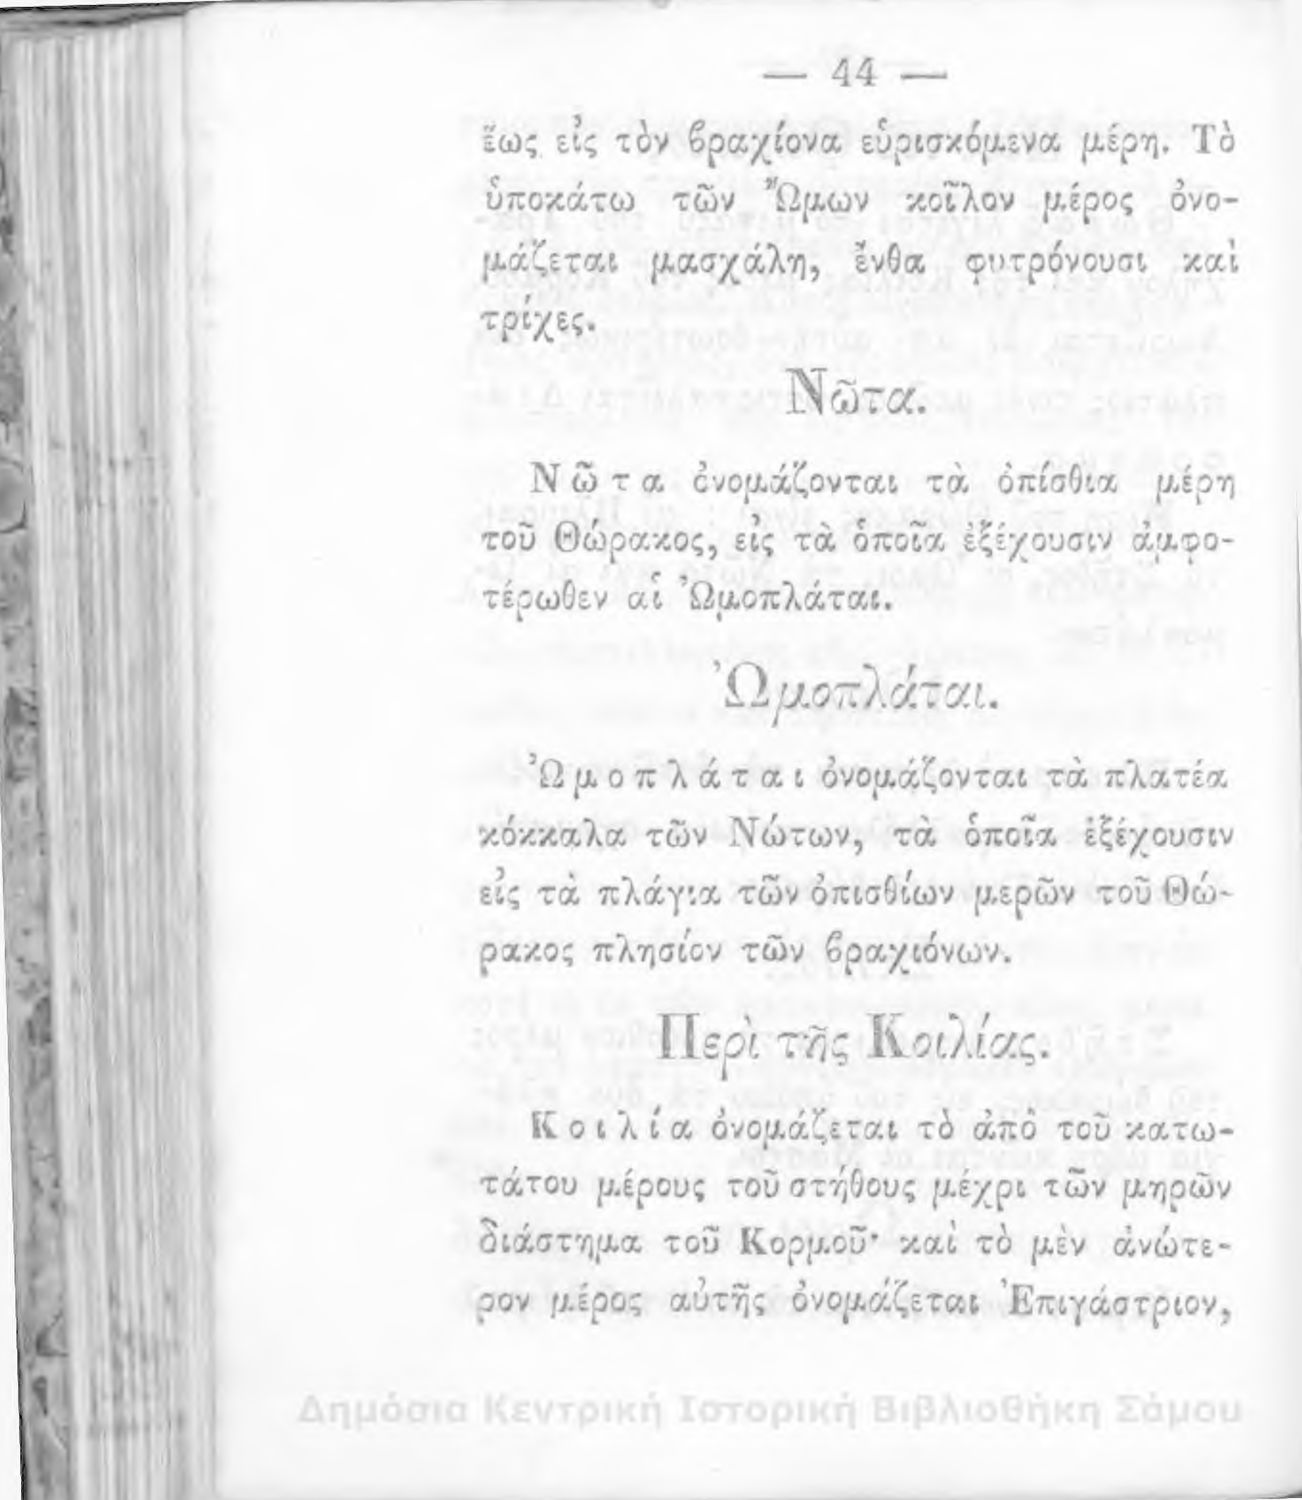 — 44 —
ἕως εἰς τὸν ϐραχίονα εὑρισκόμενα μέρη. Τὸ
ὑποκάτω τῶν Ὤμων κοῖλον μέρος ὀνο-
μάζεται μασχάλη, ἔνθα φυτρόνουσι καὶ
τρίχες.
Νῶτα.
Νῶτα ὀνομάζονται τὰ ὀπίσθια μέρη
τοῦ Θώρακος, εἰς τὰ ὁποῖα ἐξέχουσιν ἀμφο-
τέρωθεν αἱ Ὠμοπλάται.
Ὠμοπλάται.
Ὠμοπλάται ὀνομάζονται τὰ πλατέα
κόκκαλα τῶν Νώτων, τὰ ὁποῖα ἐξέχουσιν
εἰς τὰ πλάγια τῶν ὀπισθίων μερῶν τοῦ Θώ-
ρακος πλησίον τῶν ϐραχιόνων.
Περὶ τῆς Κοιλίας.
Κοιλία ὀνομάζεται τὸ ἀπὸ τοῦ κατω-
τάτου μέρους τοῦ στήθους μέχρι τῶν μηρῶν
διάστημα τοῦ Κορμοῦ· καὶ τὸ μὲν ἀνώτε-
ρον μέρος αὐτῆς ὀνομάζεται Ἐπιγάστριον,
Δημόσια Κεντρική Ιστορική Βιβλιοθήκη Σάμου